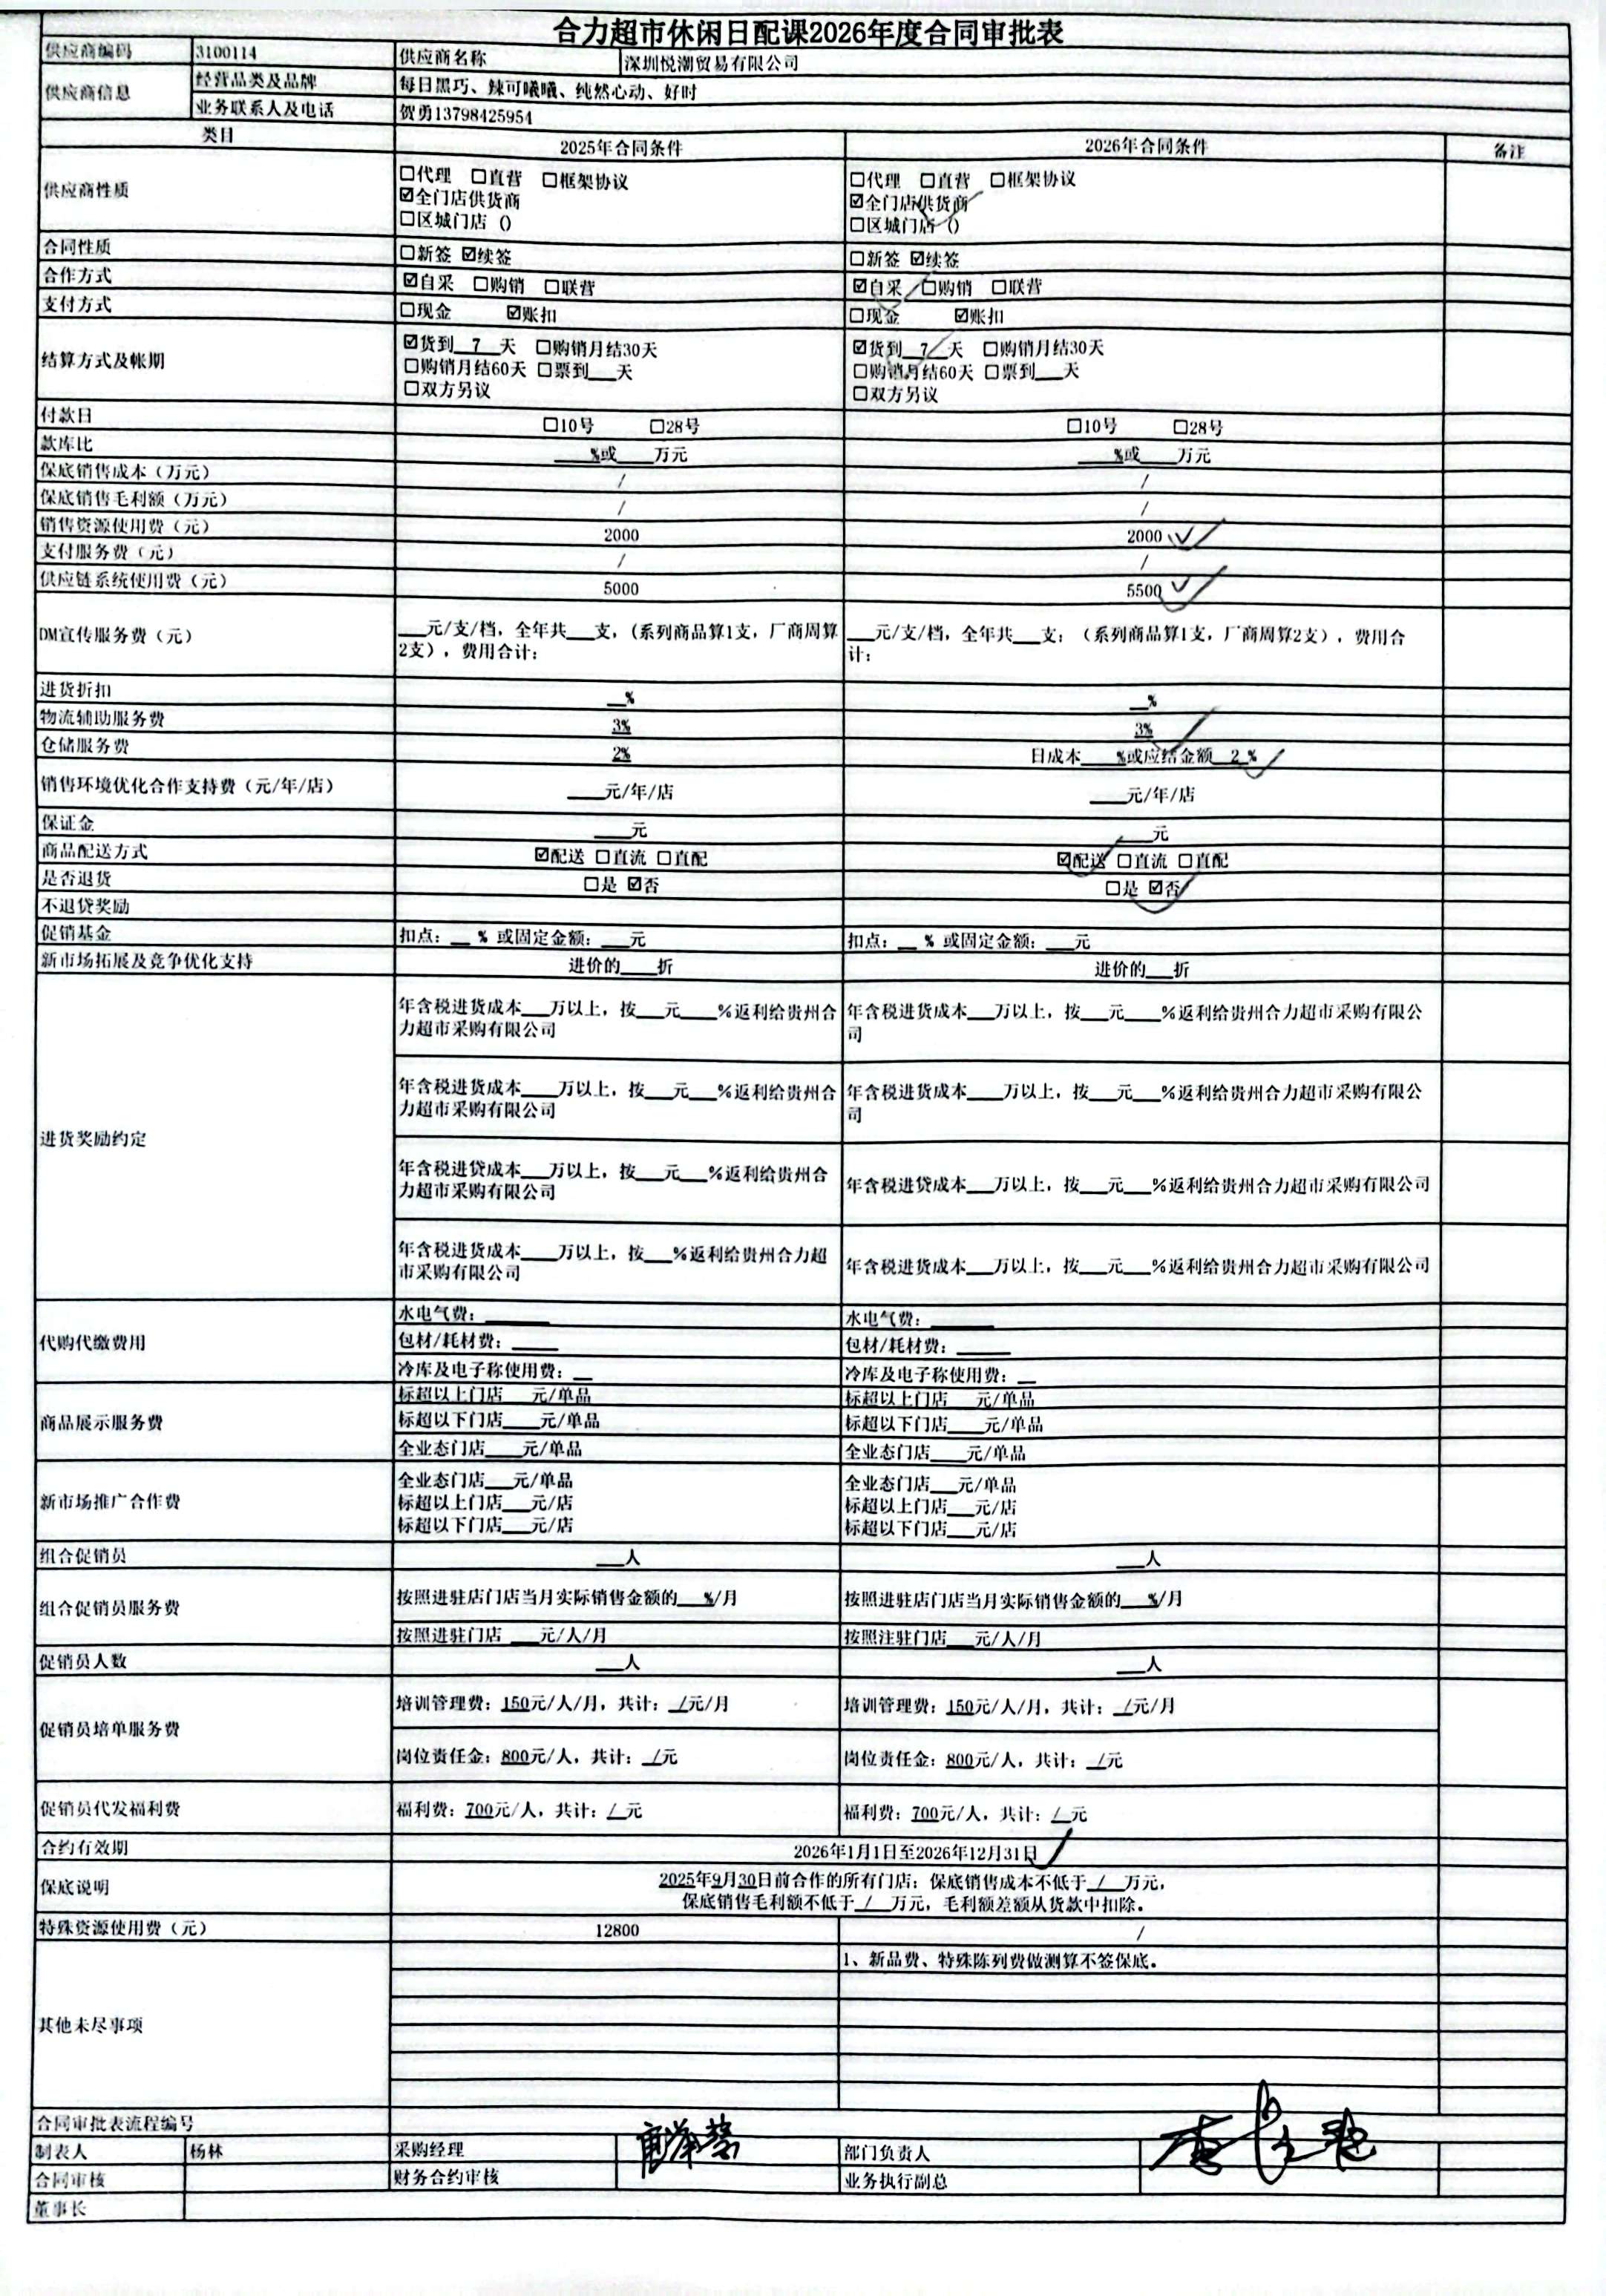 合力超市休闲日配课2026年度合同审批表
供应商编码 3100114 供应商名称 深圳悦潮贸易有限公司
供应商信息 经营品类及品牌 每日黑巧、辣可曦曦、纯然心动、好时
业务联系人及电话 贺勇13798425954
类目 2025年合同条件 2026年合同条件 备注
供应商性质 ☐代理 ☐直营 ☐框架协议 ☐代理 ☐直营 ☐框架协议
☑全门店供货商 ☑全门店供货商
☐区城门店 () ☐区城门店 ()
合同性质 ☐新签 ☑续签 ☐新签 ☑续签
合作方式 ☑自采 ☐购销 ☐联营 ☑自采 ☐购销 ☐联营
支付方式 ☐现金 ☑账扣 ☐现金 ☑账扣
结算方式及帐期 ☑货到__7__天 ☐购销月结30天 ☑货到__7__天 ☐购销月结30天
☐购销月结60天 ☐票到___天 ☐购销月结60天 ☐票到___天
☐双方另议 ☐双方另议
付款日 ☐10号 ☐28号 ☐10号 ☐28号
款库比 ____%或____万元 ____%或____万元
保底销售成本（万元） / /
保底销售毛利额（万元） / /
销售资源使用费（元） 2000 2000 ✓
支付服务费（元） / /
供应链系统使用费（元） 5000 5500 ✓
DM宣传服务费（元） ___元/支/档，全年共___支，(系列商品算1支，厂商周算 ___元/支/档，全年共___支；（系列商品算1支，厂商周算2支），费用合
2支），费用合计： 计：
进货折扣 __% __%
物流辅助服务费 3% 3% ✓
仓储服务费 2% 日成本____%或应结金额__2_% ✓
销售环境优化合作支持费（元/年/店） ____元/年/店 ____元/年/店
保证金 ____元 ____元
商品配送方式 ☑配送 ☐直流 ☐直配 ☑配送 ☐直流 ☐直配
是否退货 ☐是 ☑否 ☐是 ☑否
不退贷奖励
促销基金 扣点：__ % 或固定金额：___元 扣点：__ % 或固定金额：___元
新市场拓展及竞争优化支持 进价的____折 进价的___折
进货奖励约定 年含税进货成本___万以上，按___元____%返利给贵州合 年含税进货成本___万以上，按___元____%返利给贵州合力超市采购有限公
力超市采购有限公司 司
年含税进货成本___万以上，按___元___%返利给贵州合 年含税进货成本___万以上，按___元___%返利给贵州合力超市采购有限公
力超市采购有限公司 司
年含税进贷成本___万以上，按___元___%返利给贵州合 年含税进贷成本___万以上，按___元___%返利给贵州合力超市采购有限公司
力超市采购有限公司
年含税进货成本____万以上，按___%返利给贵州合力超 年含税进货成本___万以上，按___元___%返利给贵州合力超市采购有限公司
市采购有限公司
代购代缴费用 水电气费：_______ 水电气费：_______
包材/耗材费：_____ 包材/耗材费：______
冷库及电子称使用费：__ 冷库及电子称使用费：__
商品展示服务费 标超以上门店___元/单品 标超以上门店___元/单品
标超以下门店____元/单品 标超以下门店____元/单品
全业态门店____元/单品 全业态门店____元/单品
新市场推广合作费 全业态门店___元/单品 全业态门店___元/单品
标超以上门店___元/店 标超以上门店___元/店
标超以下门店___元/店 标超以下门店___元/店
组合促销员 ___人 ___人
组合促销员服务费 按照进驻店门店当月实际销售金额的___%/月 按照进驻店门店当月实际销售金额的___%/月
按照进驻门店 ___元/人/月 按照注驻门店___元/人/月
促销员人数 ___人 ___人
促销员培单服务费 培训管理费：150元/人/月，共计：_/元/月 培训管理费：150元/人/月，共计：_/元/月
岗位责任金：800元/人，共计：_/元 岗位责任金：800元/人，共计：_/元
促销员代发福利费 福利费：700元/人，共计：/_元 福利费：700元/人，共计：/_元
合约有效期 2026年1月1日至2026年12月31日 ✓
保底说明 2025年9月30日前合作的所有门店；保底销售成本不低于_/__万元，
保底销售毛利额不低于_/__万元，毛利额差额从货款中扣除。
特殊资源使用费（元） 12800 /
其他未尽事项 1、新品费、特殊陈列费做测算不签保底。
合同审批表流程编号
制表人 杨林 采购经理 部门负责人
合同审核 财务合约审核 业务执行副总
董事长